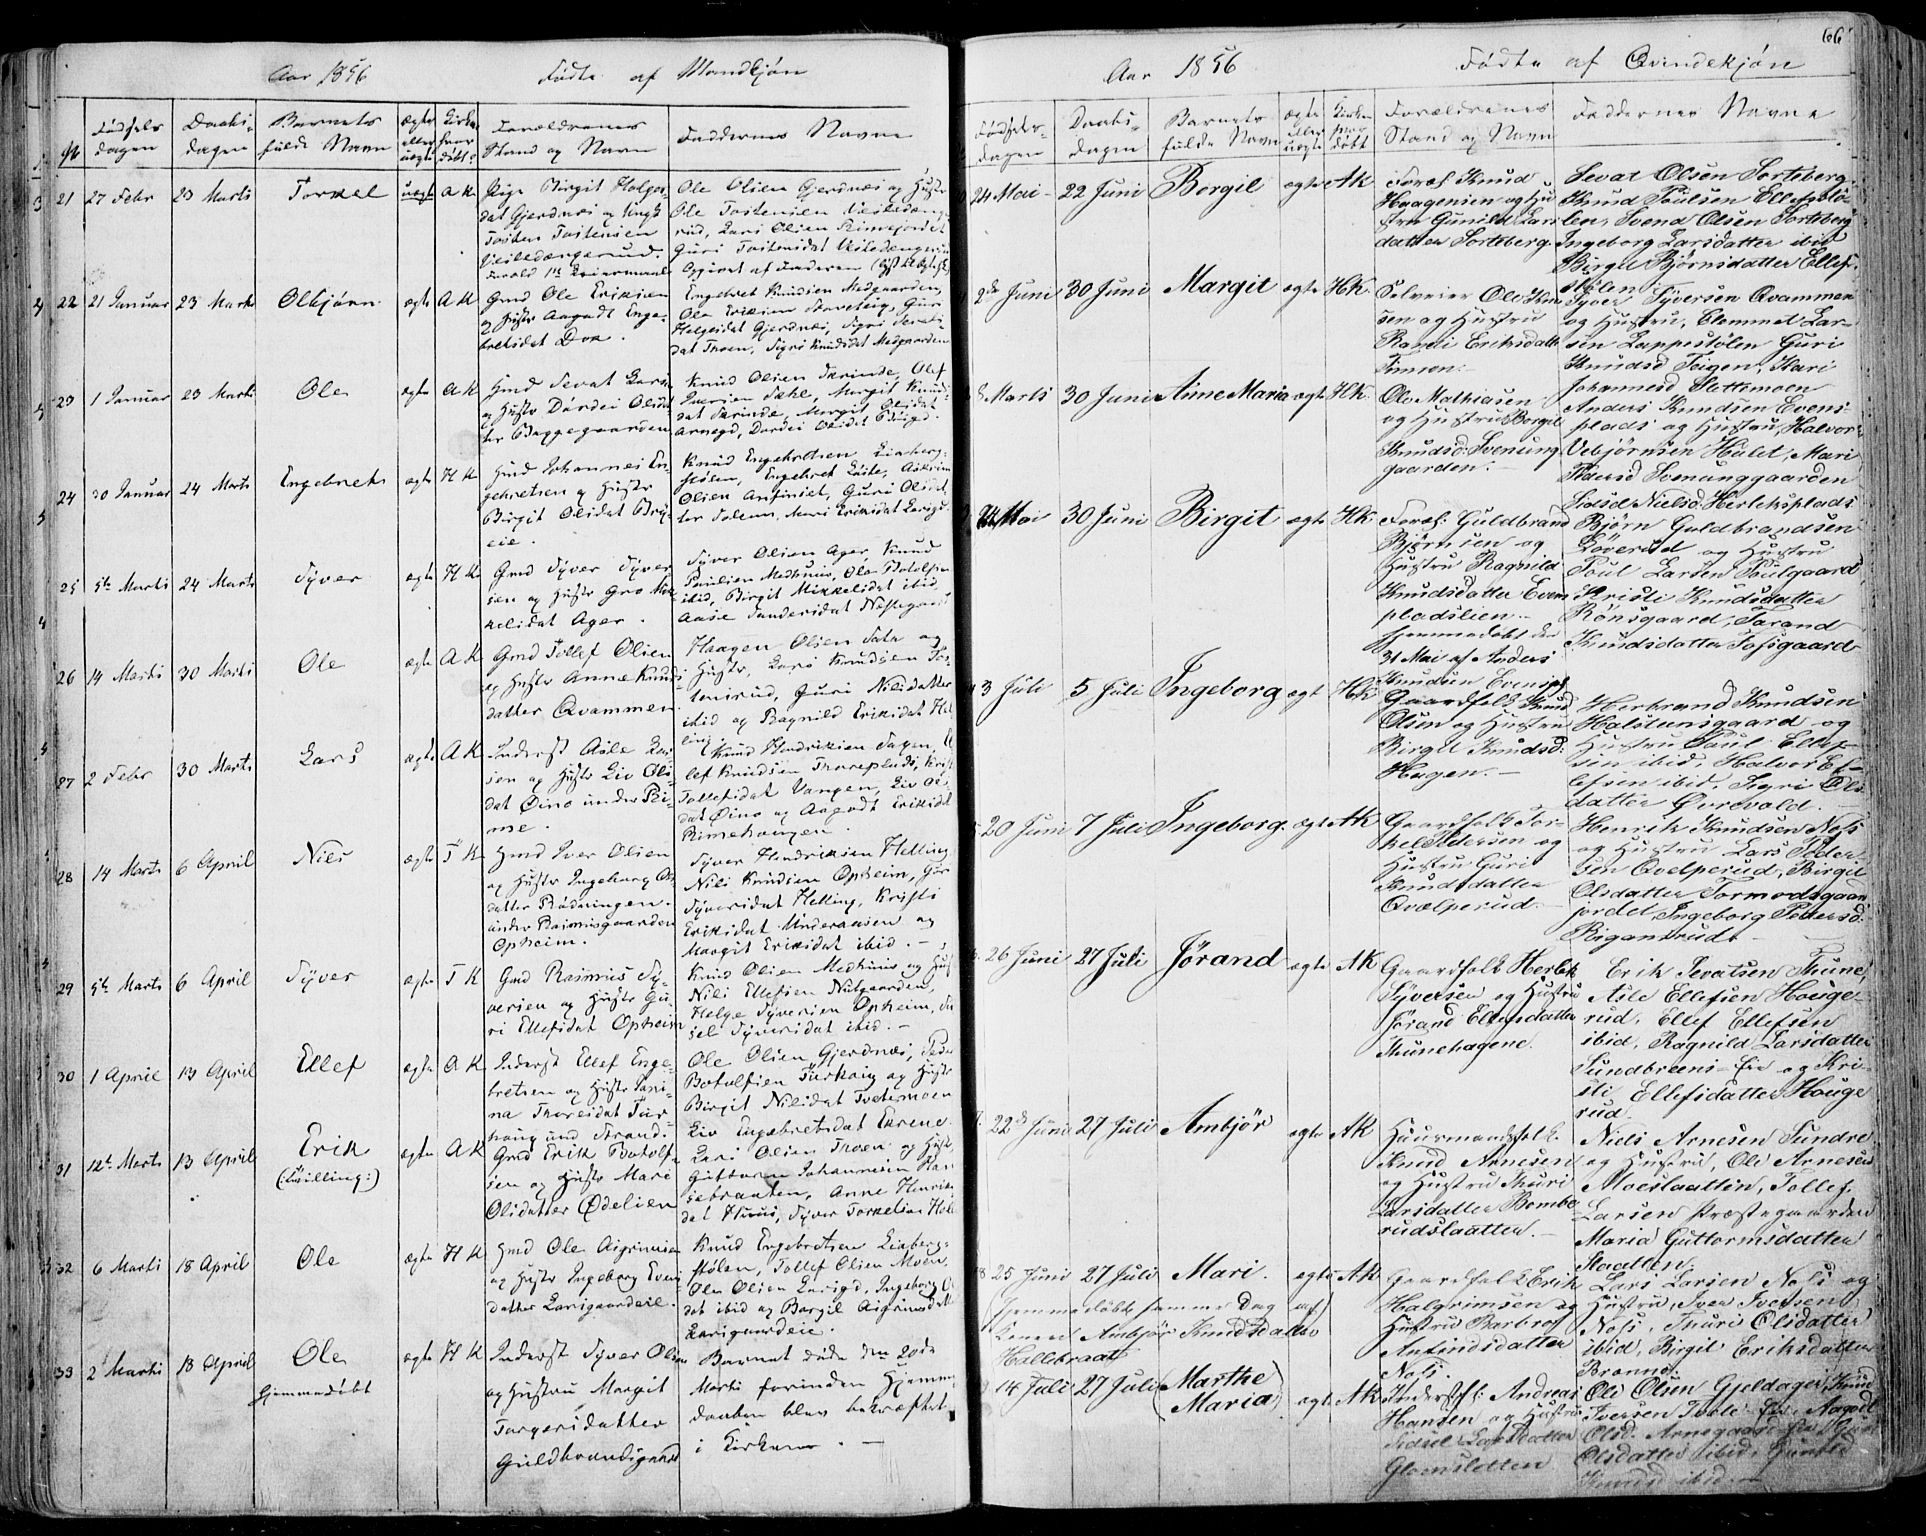 Aar 1856 Fødte af Mandkjøn
No
Fødsels dagen
Daabs-dagen
Barnets fulde Navn
ægte eller uægte
Forældrenes Stand og Navn
Faddernes Navne
21 27 Febr 23 Marts Torkel uægt A K
Pige Birgit Holgers
dat Gjerdnæs og Ungk
Tosten Tostensen
Ole Olsen Gjerdnæs og Hustr
Ole Tostensen
rud, Lars Olsen
Guri Tostensdat
22 21 Januar 23 Marts Olbjørn ægte A K
Gmd Ole Eriksen
og Hustr Aagodt Enge-
bretsdat Dok.
Engebret Knudsen Medgaarden,
Ole Eriksen
Helgesdat Gjerdnæs, Sigri
dat Thoen, Sigri Knudsdat Medgaarden
23 1 Januar 23 Marts Ole ægte A K
Gmd Sevat Lars
og Hustr Dordei Olsdat
ter Byggegaarden
Knud Olsen Skrinde, Olef
Iversen Sehl, Margit Knud
dat Skrinde, Margit Olsdat
Arnegd, Dordei Olsdat
24 30 Januar 24 Marts Engebret ægte H K
Gmd Johannes En-
gebretsen og Hustr
Birgit Olsdat
eie.
Knud Engebretsen Liaberg-
stølen, Engebret
Olsen Anfinset, Guri Olsdat
25 5te Marts 24 Marts Syver ægte H K
Gmd Syver Syver
sen og Hustr Gro Mik
kelsdat Ager.
Syver Olsen Ager, Knud
Paulsen Medhuus, Ole Botolfsen
ibid, Birgit Mikkelsdat ibid,
Aase Sandersdat
26 14 Marts 30 Marts Ole ægte A K
Gmd Tollef Olsen
og Hustr Anne Knuds
datter Qvammen
Haagen Olsen Sata og
Hustr, Lars Knudsen
Guri Nilsdatter
ibid og Ragnild Eriksdat Hel
ling
27 2 Febr 30 Marts Lars ægte A K
Inderst Asle Lar
sen og Hustr Liv Ols
dat Øino under Ri-
me.
Knud Hendriksen
lef Knudsen Thoreplads, Krist
Tollefsdat Vangen, Liv Ols
dat Øino og Aagodt Eriksdat
Rimehougen.
28 14 Marts 6 April Nils ægte T K
Gmd Iver Olsen
og Hustr Ingeborg Ols
datter Rødningen.
under Rasmusgaarden
Opheim.
Syver Hendriksen Helling
Nils Knudsen Opheim, Gjør
Syversdat Helling, Kristi
Eriksdat og
Margit Eriksdat ibid. -
29 5te Marts 6 April Syver ægte T K
Gmd Rasmus Sy-
versen og Hustr Gu-
ri Ellefsdat Opheim
Knud Olsen Medhuus og Hust
Nils Ellefsen Nubgaarden,
Helge Syversen Opheim,
sel Syversdat ibid. -
30 1 April 13 April Ellef ægte A K
Inderst Ellef Enge-
bretsen og Hustr
na Thoresdat
houg und Strand.
Ole Olsen Gjerdnæs, Peder
Botolfsen og Hustr
Birgit Nilsdat Tvetemoen
Liv Engebretsdat Ekrene
31 12te Marts 13 April Erik ægte A K
(:Tvilling:)
Gmd Erik Botolf-
sen og Hustr Mari
Olsdatter Ødelien
Lars Olsen Thoen og Hustr
Guttorm Johannesen
sebraaten, Anne Henriks
dat Huus, Syver Torkelsen
32 6 Marts 18 April Ole ægte H K
Gmd Ole Asgrimsen
og Hustr Ingeborg Evens
datter Larsgaardeie.
Knud Engebretsen Liaberg-
stølen, Tollef Olsen Moen,
Ole Olsen Larsgd, Ingeborg O
dat ibid og Bergil Asgrimsdat
Larsgaardeie.
33 2 Marts 18 April Ole ægte H K
Hjemmedøbt
Inderst Syver Olsen
og Hustru Margit
Torgersdatter
Guldbrandsgaard
Barnet døde den 20de
Marts forinden Hjemme
daaben blev bekræftet
i Kirken. -
66
Aar 1856 Fødte af Qvindekjøn
Fødsels-dagen
Daabs-dagen
Barnets fulde Navn
ægte eller uægte
Kirken hvor døbt
Forældrenes Stand og Navn
Faddernes Navne
24 Mai - 22 Juni Bergil ægte A K
Foræl. Knud
Haagensen og Hu
stru Gunild Lars
datter Sorteberg.
Sevat Olsen Sorteberg,
Knud Poulsen Ellefsstø-
len, Svend Olsen Sorteberg
Ingeborg Larsdatter ibid
Birgit Bjørnsdatter Ellef-
stølen
2de Juni 30 Juni Margit ægte HK.
Selveier Ole
sen og Hustru
Randi Eriksdatt
Syver Syversen Qvammen
og Hustru, Clemmet Lar-
sen Lappestølen Guri
Knudsd Teigen, Kari
Johannesd Slettemoen
8 Marts 30 Juni Anne Maria ægte HK.
Ole Mathiasen
og Hustru Bergit
Knudsd: Svenung
gaarden. -
Anders Knudsen Evens-
plads og Hustru, Halvor
Vebjørnsen Hulet, Mari
Pedersd Svenunggaarden
Sidsel Nielsd: Herleksplads
24 Mai 30 Juni Birgit ægte HK
Foræl: Guldbrand
Bjørnsen og
Hustru Ragnild
Knudsdatter Even
pladslien. -
Hjemmedøbt den
31 Mai af Anders
Knudsen Evenspl
Bjørn Guldbrandsen
Løverød og Hustru
Poul Larsen Poulgaard,
Kristi Knudsdatter
Rønsgaard, Jørand
Knudsdatter Tofsgaard
3 Juli 5 Juli Ingeborg ægt HK
Gaardfolk Knud
Olsen og Hustru
Birgit Knudsd:
Hagen. -
Herbrand Knudsen
Halstensgaard og
Hustru Poul Ellef-
sen ibid, Halvor El-
lefsen ibid, Sigri Ols
datter Øvrevold. -
20 Juni 7 Juli Ingeborg. ægte AK
Gaardfolk Tor-
kel Pedersen og
Hustru Guri
Knudsdatter
Qvælperud. -
Henrik Knudsen Næs
og Hustru Lars Peder-
sen Qvelperud, Birgit
Olsdatter Tormodsgaar
jordet, Ingeborg Pedersd:
26 Juni 27 Juli Jørand ægte AK
Gaardfolk Herlek
Syversen og Hustru
Jørand Ellefsdatter
Thunehagene.
Erik Sevatsen Thune,
Asle Ellefsen Houge-
rud, Ellef Ellefsen
ibid, Ragnild Larsdatter
Sundbreens-Eie og Kri-
sti Ellefsdatter Houge
rud.
22de Juni 27 Juli Ambjør ægte AK
Huusmandsfolk.
Knud Arnesen
og Hustru Thuri
Larsdatter Bombe
rudslaatten. -
Niels Arnesen Sundre
og Hustru, Ole Arnesen
Moeslaatten, Tollef
Larsen Præstegaarden
Maria Guttormsdatter
Slaatten.
25 Juni 27 Juli Mari. ægte AK
(Hjemmedøbt samme Dag af)
Konen Ambjør Knudsdatter
Hallebraat
Gaardfolk Erik
Halgrimsen og
Hustru Barbro
Anfindsdatter
Næs.
Lars Larsen Næs og
Hustru, Iver Iversen
Næs, Thuri Olsdatter
ibid, Birgit Eriksdatter
14 Juli 27 Juli (Marthe Maria) ægte AK
Inderstf: Andreas
Hansen og Hustru
Sidsel Larsdatter
Ole Olsen Gjeldager, Knud
Iversen
Olsd: Arnegaards
Olsdatter ibid, Gunild
Knudsd ibid. -